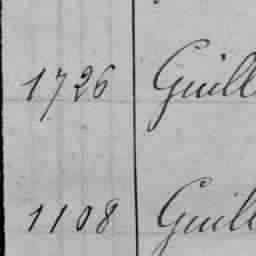 1726 Guill
1108 Guill